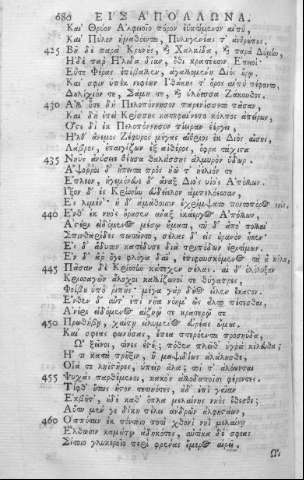 680 ΕΙΣ ΑΠΟΛΛΩΝΑ.
Καὶ Θρύον Ἀλφειοῖο πόρον
Καὶ Πύλον ἠμαθόεντα, Πυληγενέας τ' ἀνθρώπους.
425 Βῆ δὲ παρὰ Κρουνοὺς, καὶ Χαλκίδα, καὶ παρὰ Δύμην,
Ἠδὲ παρ' Ἤλιδα δῖαν, ὅθι κρατέουσιν Ἐπειοί·
Εὖτε Φερὰς ἐπέβαλλεν, ἀγαλλομένη Διὸς οὔρῳ,
Καί σφιν ὑπὲκ νεφέων Ἰθάκης τ' ὄρος αἰπὺ πέφαντο,
Δουλίχιόν τε, Σάμη τε, καὶ ὑλήεσσα Ζάκυνθος.
430 Ἀλλ' ὅτε δὴ Πελοπόννησον παρενίσσατο πᾶσαν,
Καὶ δὴ ἐπεὶ Κρίσσης κατεφαίνετο κόλπος ἀπείρων,
Ὅς τε δι' ἐκ Πελοπόννησον πίειραν ἐέργει,
Ἦλθ' ἄνεμος Ζέφυρος μέγας αἴθριος ἐκ Διὸς αἴσης,
Λάβρος, ἐπαιγίζων ἐξ αἰθέρος, ὄφρα τάχιστα
435 Νηῦς ἀνύσειε θέουσα θαλάσσης ἁλμυρὸν ὕδωρ.
Ἄψορροι δ' ἤπειτα πρὸς ἠῶ τ' ἠέλιόν τε
Ἔπλεον, ἡγεμόνευε δ' ἄναξ Διὸς υἱὸς Ἀπόλλων.
Ἷξον δ' ἐς Κρίσσην εὐδείελον ἀμπελόεσσαν,
Ἐς λιμέν'· ἡ δ' ἀμάθοισιν ἐχρίμψατο ποντοπόρος νηῦς.
440 Ἔνθ' ἐκ νηὸς ὄρουσεν ἄναξ ἑκάεργος Ἀπόλλων,
Ἀστέρι εἰδόμενος μέσῳ ἤματι, τοῦ δ' ἀπὸ πολλαὶ
Σπινθαρίδες πωτῶντο, σέλας δ' εἰς οὐρανὸν ἷκεν·
Ἐς δ' ἄδυτον κατέδυσε διὰ τριπόδων ἐριτίμων.
Ἐν δ' ἄρ' ὅγε φλόγα δαῖε, πιφαυσκόμενος τὰ ἃ κῆλα,
445 Πᾶσαν δὲ Κρίσσην κάτεχεν σέλας· αἱ δ' ὀλόλυξαν
Κρισσαίων ἄλοχοι καλλίζωνοί τε θύγατρες·
Φοίβου ὑπὸ ῥιπῆς· μέγα γὰρ δέος ἔμβαλ' ἑκάστῳ.
Ἔνθεν δ' αὖτ' ἐπὶ νῆα νόημ' ὣς ἆλτο πέτεσθαι,
Ἀνέρι εἰδόμενος αἰζηῷ τε κρατερῷ τε
450 Πρωθήβῃ, χαίτῃς εἰλυμένος εὐρέας ὤμους.
Καί σφεας φωνήσας, ἔπεα πτερόεντα προσηύδα,
Ὦ ξεῖνοι, τίνες ἐστέ; πόθεν πλεῖθ' ὑγρὰ κέλευθα;
Ἤ τι κατὰ πρῆξιν, ἢ μαψιδίως ἀλάλησθε,
Οἷά τε ληϊστῆρες, ὑπεὶρ ἅλα; τοί τ' ἀλόωνται
455 Ψυχὰς παρθέμενοι, κακὸν ἀλλοδαποῖσι φέροντες.
Τίφθ' οὕτως ἧσθον τετιηότες, οὐδ' ἐπὶ γαῖαν
Ἐκβῆτ', οὐδὲ καθ' ὅπλα μελαίνης νηὸς ἔθεσθε;
Αὕτη μέν γε δίκη πέλει ἀνδρῶν ἀλφηστάων,
460 Ὁππότ' ἂν ἐκ πόντοιο ποτὶ χθονὶ νηῒ μελαίνῃ
Ἔλθωσιν καμάτῳ ἀδηκότες, αὐτίκα δέ σφεας
Σίτοιο γλυκεροῖο περὶ φρένας ἵμερος αἱρεῖ.